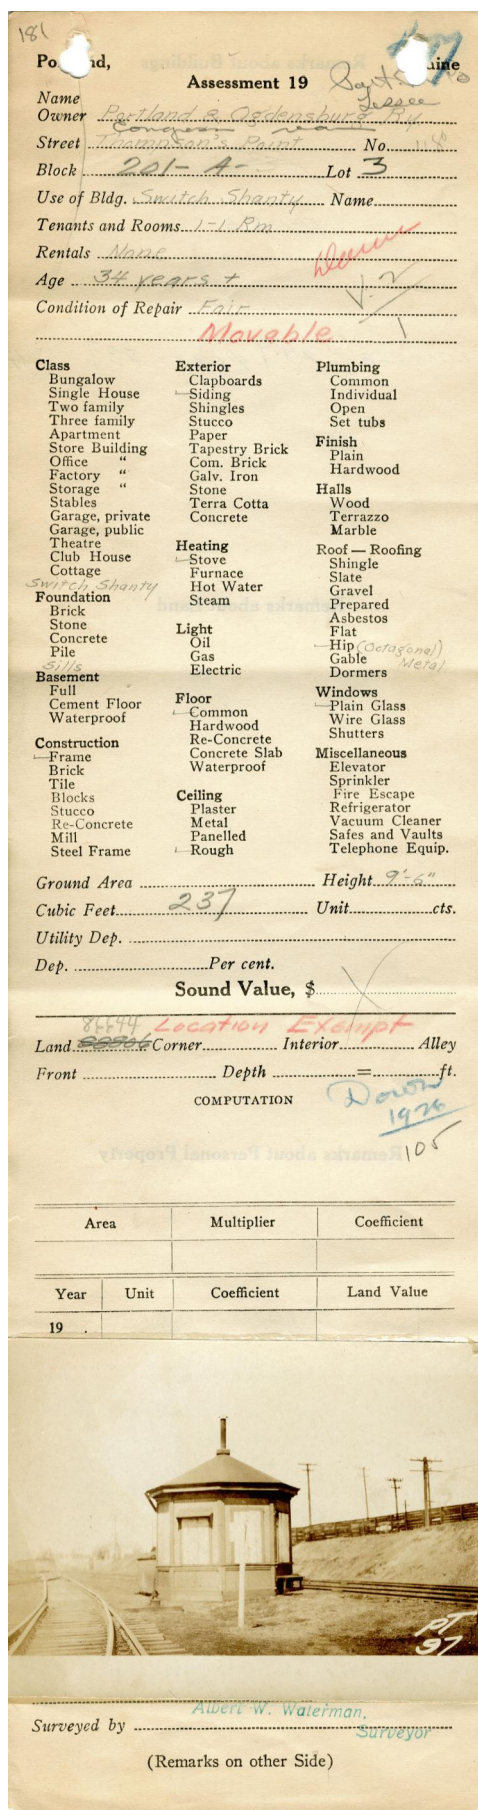 181
Po nd, aine
Assessment 19
Lessee
Name
Owner Portland & Ogdensburg Ry
Congress rear
Street Thompson's Point No. 1180
Block 201-A- Lot 3
Use of Bldg. Switch Shanty Name
Tenants and Rooms 1-1 Rm
Rentals None
Down
Age 34 years +
V. 2
Condition of Repair Fair
1
Movable
Class
Bungalow
Single House
Two family
Three family
Apartment
Store Building
Office "
Factory "
Storage "
Stables
Garage, private
Garage, public
Theatre
Club House
Cottage
Switch Shanty
Foundation
Brick
Stone
Concrete
Pile
Sills
Basement
Full
Cement Floor
Waterproof
Construction
Frame
Brick
Tile
Blocks
Stucco
Re-Concrete
Mill
Steel Frame
Exterior
Clapboards
Siding
Shingles
Stucco
Paper
Tapestry Brick
Com. Brick
Galv. Iron
Stone
Terra Cotta
Concrete
Heating
Stove
Furnace
Hot Water
Steam
Light
Oil
Gas
Electric
Floor
Common
Hardwood
Re-Concrete
Concrete Slab
Waterproof
Ceiling
Plaster
Metal
Panelled
Rough
Plumbing
Common
Individual
Open
Set tubs
Finish
Plain
Hardwood
Halls
Wood
Terrazzo
Marble
Roof — Roofing
Shingle
Slate
Gravel
Prepared
Asbestos
Flat
Hip (Octagonal)
Gable Metal
Dormers
Windows
Plain Glass
Wire Glass
Shutters
Miscellaneous
Elevator
Sprinkler
Fire Escape
Refrigerator
Vacuum Cleaner
Safes and Vaults
Telephone Equip.
Ground Area Height 9'-6"
Cubic Feet 237 Unit cts.
Utility Dep.
Dep. Per cent.
Sound Value, $
86694 Location Exempt
Land Corner Interior Alley
Front Depth = ft.
COMPUTATION
Down
1926
105
Area Multiplier Coefficient
Year Unit Coefficient Land Value
19 .
PT
97
Albert W. Waterman,
Surveyed by Surveyor
(Remarks on other Side)